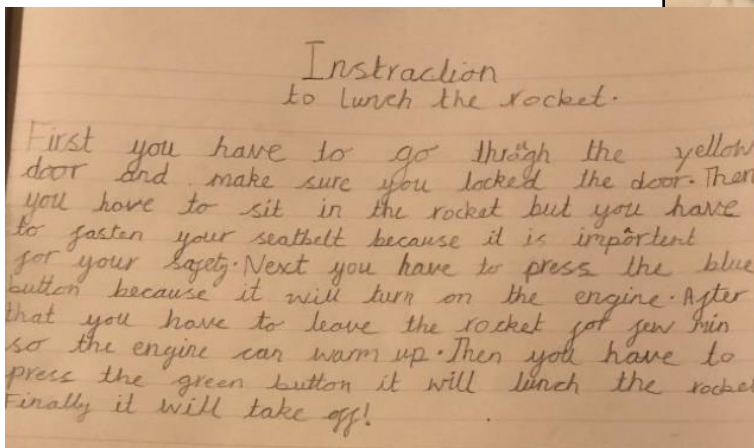 Instraction
to lunch the rocket.
First you have to go throügh the yellow
door and make sure you locked the door. Then
you have to sit in the rocket but you have
to fasten your seatbelt because it is importent
for your safety. Next you have to press the blue
button because it will turn on the engine. After
that you have to leave the rocket for few min
so the engine can warm up. Then you have to
press the green button it will lunch the rocket
Finally it will take off!